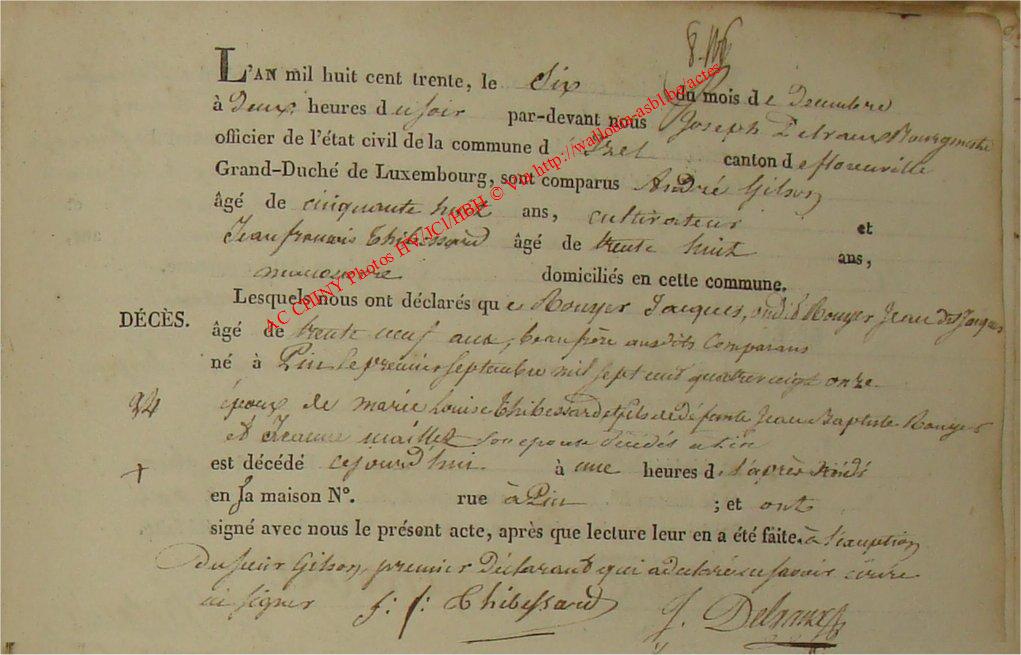 L'AN mil huit cent trente, le Six du mois de Decembre
à Deux heures du soir par-devant nous Joseph Delraux Bourgmestre
officier de l'état civil de la commune d'Izel canton de florenville
Grand-Duché de Luxembourg, sont comparus André Gilson
âgé de cinquante huit ans, cultivateur et
Jean françois Thibessard âgé de trente huit ans,
manoeuvre domiciliés en cette commune.
Lesquels nous ont déclarés que Rouyer Jacques, Rouyer Jean dit Jacques
DÉCÈS.
âgé de trente neuf ans, beaufrère ausdits Comparans
né à Pin le premier septembre mil sept cent quatre vingt onze
24
époux de marie Louise Thibessard et fils de défunts Jean Baptiste Rouyer
et Jeanne maillet son epouse décédés a Pin
+
est décédé cejourd'hui à une heures de l'après midi
en sa maison N°. rue à Pin ; et ont
signé avec nous le présent acte, après que lecture leur en a été faite. à l'exception
du sieur Gilson, premier Déclarant qui a déclaré ne savoir écrire
ni signer j: f: Thibessard J. Delraux
AC CHINY Photos HV/JCl/HBH © Via http://wallonia-asbl.be/actes